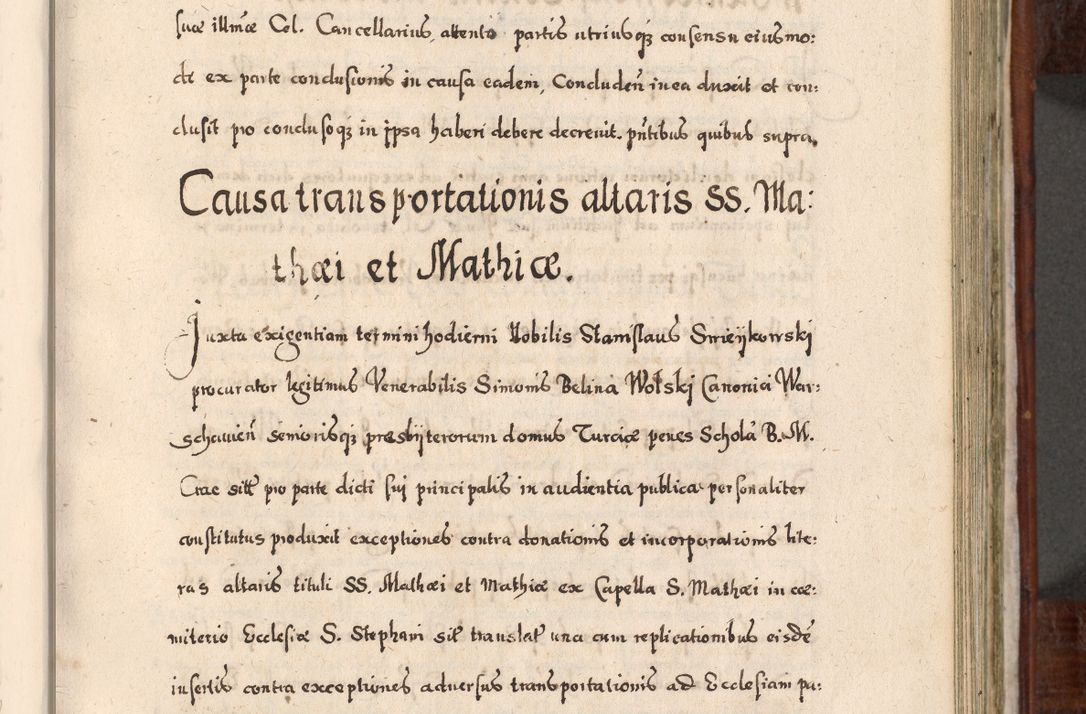 suæ illmæ Cel. Cancellarius, attento partis utriusqȝ consensu eiusmo:
di ex parte conclusionis in causa eadem, Concludeñ in ea duxit et con:
clusit pro conclusoqȝ in ipsa haberi debere decrevit. pñtibus quibus supra.
Causa transportationis altaris SS. Ma:
thæi et Mathiæ.
Juxta exigentiam termini hodierni Nobilis Stanislaus Swieÿkowski
procurator legitimus Venerabilis Simonis Belina Wolski Canonici War:
schavieñ seniorisqȝ presbÿterorum domus Turciæ penes Scholã B. M.
Crac sitæ pro parte dicti sui principalis in audientia publica personaliter
constitutus produxit exceptiones contra donationis et incorporationis lite:
ras altaris tituli SS. Mathæi et Mathiæ ex Capella S. Mathæi in cœ:
miterio Ecclesiæ S. Stephani sit translat una cum replicationibus eisdẽ
insertis contra exceptiones adversus transportationis ad Ecclesiam pa: